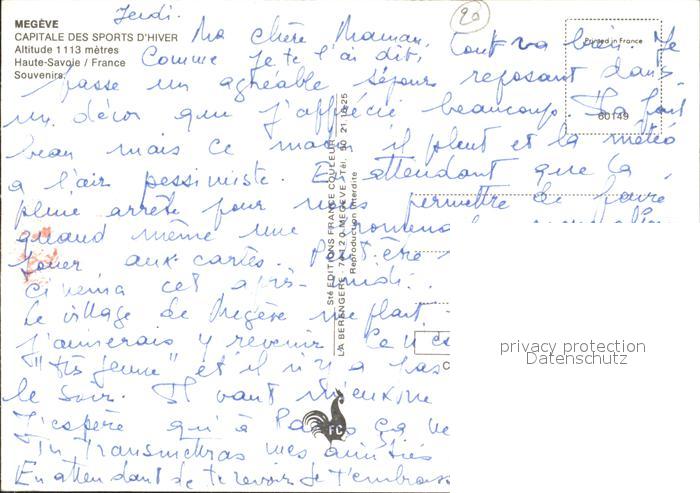 MEGÈVE
CAPITALE DES SPORTS D'HIVER
Altitude 1113 mètres
Haute-Savoie / France
Souvenirs.
Printed in France
60149
20
Jeudi.
Ma chère Maman,
Comme je te l'ai dit, tout va bien. Je
passe un agréable séjour reposant dans
un décor que j'apprécie beaucoup. Il a fait
beau mais ce matin il pleut et la météo
a l'air pessimiste. En attendant que la
pluie arrête pour nous permettre de faire
quand même une promena
jouer aux cartes. Peut-être
cinéma cet après-midi.
Le village de Megève me plaît
J'aimerais y revenir. Ce n'es
"très jeune" et il n'y a pas
le soir. Il vaut mieux
J'espère qu'à Paris ça va
Tu transmettras mes amitiés
En attendant de te revoir je t'embrass
Sté EDITIONS FRANCE COULEUR
LA BERANGERE - 74120 MEGEVE - Tél. 50 21.18.25
Reproduction interdite
FC
privacy protection
Datenschutz